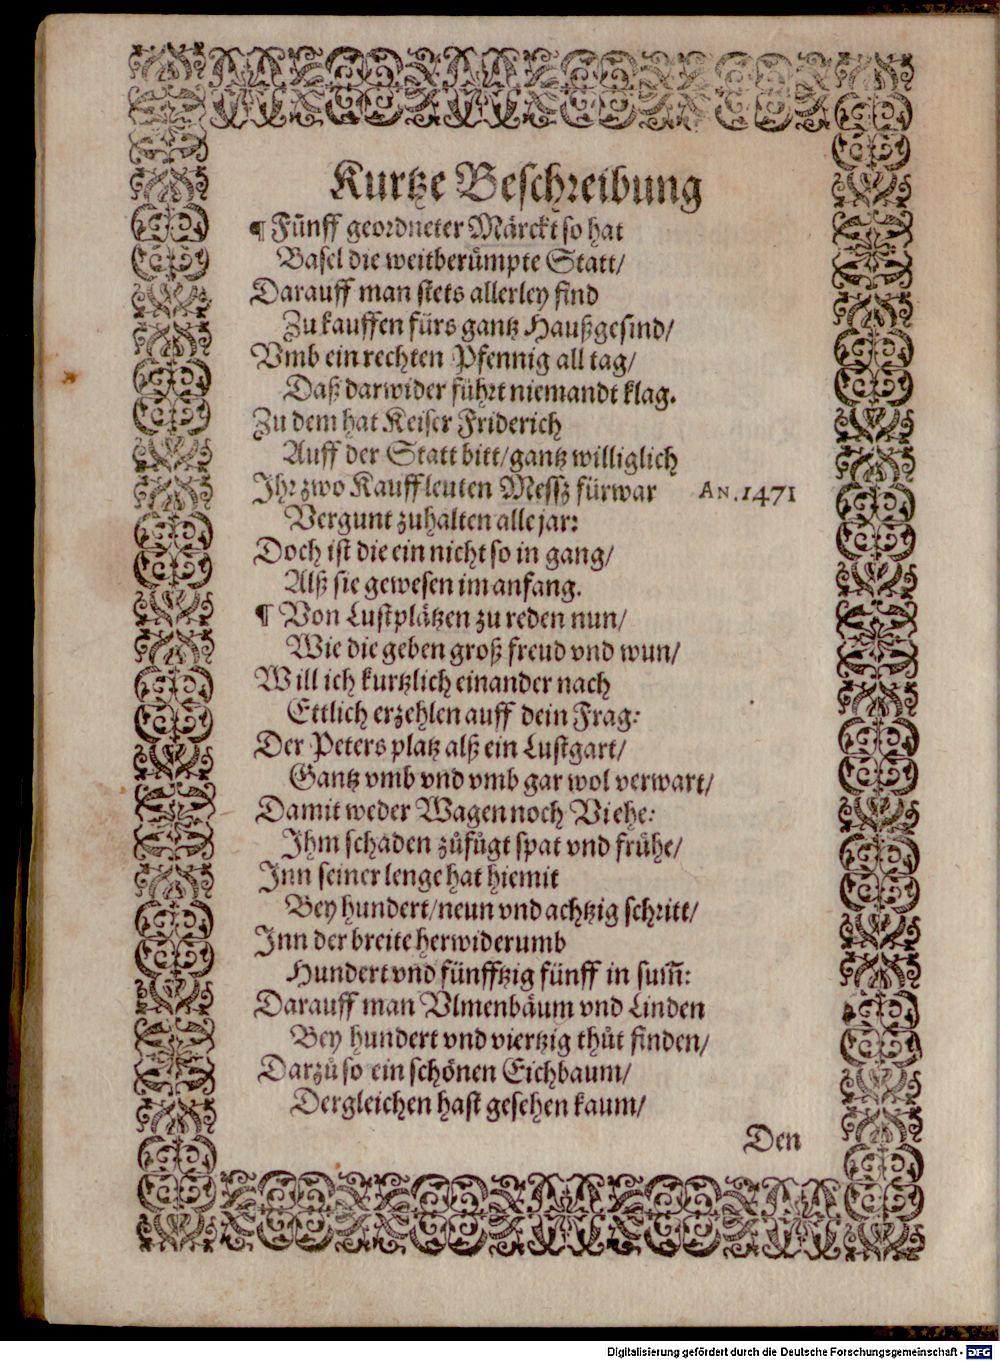 Kurtze Beschreibung
¶ Fünff geordneter Märckt so hat
Basel die weitberümpte Statt/
Darauff man stets allerley find
Zu kauffen fürs gantz Haußgesind/
Vmb ein rechten Pfennig all tag/
Daß darwider führt niemandt klag.
Zu dem hat Keiser Friderich
Auff der Statt bitt/ gantz williglich
Ihr zwo Kauffleuten Messz fürwar AN. 1471
Vergunt zuhalten alle jar:
Doch ist die ein nicht so in gang/
Alß sie gewesen im anfang.
¶ Von Lustplätzen zu reden nun/
Wie die geben groß freud vnd wun/
Will ich kurtzlich einander nach
Ettlich erzehlen auff dein Frag:
Der Peters platz alß ein Lustgart/
Gantz vmb vnd vmb gar wol verwart/
Damit weder Wagen noch Viehe:
Ihm schaden zůfůgt spat vnd frühe/
Inn seiner lenge hat hiemit
Bey hundert/ neun vnd achtzig schritt/
Inn der breite herwiderumb
Hundert vnd fünfftzig fünff in sum̄:
Darauff man Vlmenbäum vnd Linden
Bey hundert vnd viertzig thůt finden/
Darzů so ein schönen Eichbaum/
Dergleichen hast gesehen kaum/
Den
Digitalisierung gefördert durch die Deutsche Forschungsgemeinschaft - DFG